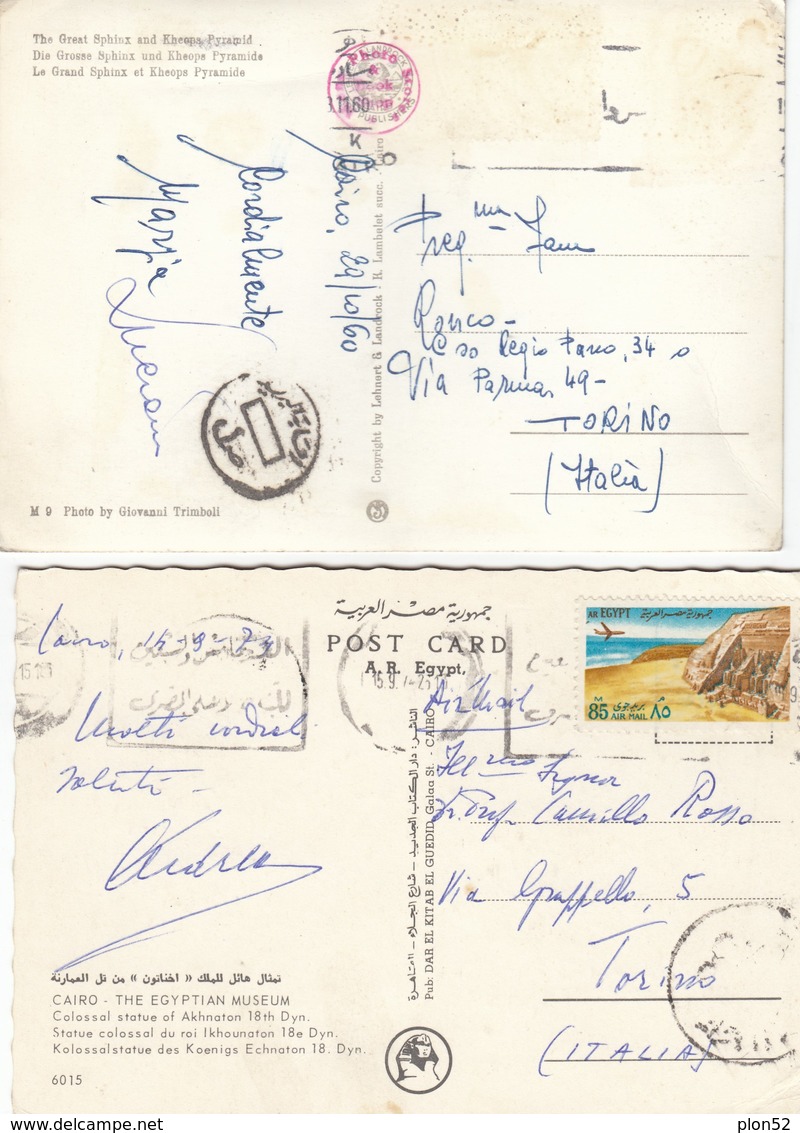 The Great Sphinx and Kheops Pyramid
Die Grosse Sphinx und Kheops Pyramide
Le Grand Sphinx et Kheops Pyramide
Photo Store
PUBLISHERS
.11.60
Cairo, 29/10/60
Cordialmente
Marzia
Copyright by Lehnert & Landrock, K. Lambelet succ. Cairo
Preg.ma Fam
Ronco -
C so Regio Parco, 34
Via Parma, 49 -
TORINO
(Italia)
M 9 Photo by Giovanni Trimboli
جمهورية مصر العربية
POST CARD
A. R. Egypt.
AR EGYPT جمهورية مصر العربية
M 85 AIR MAIL بريد جوى ٨٥ م
Cairo, 15-9-73
15.9.7
Air Mail
Molti cordiali
saluti
Andrea
Ill.mo Signor
Dr. Prof. Camillo Rosso
Via Grappello, 5
Torino
(ITALIA)
الناشر: دار الكتاب الجديد - شارع الجلاء - القاهرة
Pub: DAR EL KITAB EL GUEDID, Galaa St. - CAIRO
تمثال هائل للملك « اخناتون » من تل العمارنة
CAIRO - THE EGYPTIAN MUSEUM
Colossal statue of Akhnaton 18th Dyn.
Statue colossal du roi Ikhounaton 18e Dyn.
Kolossalstatue des Koenigs Echnaton 18. Dyn.
6015
plon52